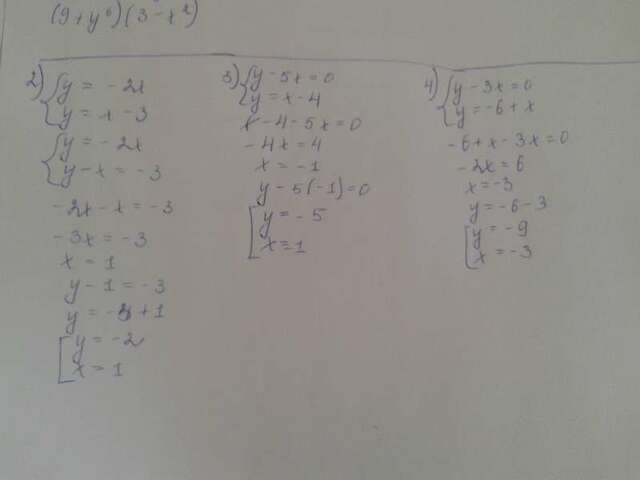 (9+y⁶)(3-x²)
2) {y = -2x
{y = x - 3
{y = -2x
{y - x = -3
-2x - x = -3
-3x = -3
x = 1
y - 1 = -3
y = -3 + 1
[y = -2
[x = 1
3) {y - 5x = 0
{y = x - 4
x - 4 - 5x = 0
-4x = 4
x = -1
y - 5(-1) = 0
[y = -5
[x = 1
4) {y - 3x = 0
{y = -6 + x
-6 + x - 3x = 0
-2x = 6
x = -3
y = -6 - 3
[y = -9
[x = -3